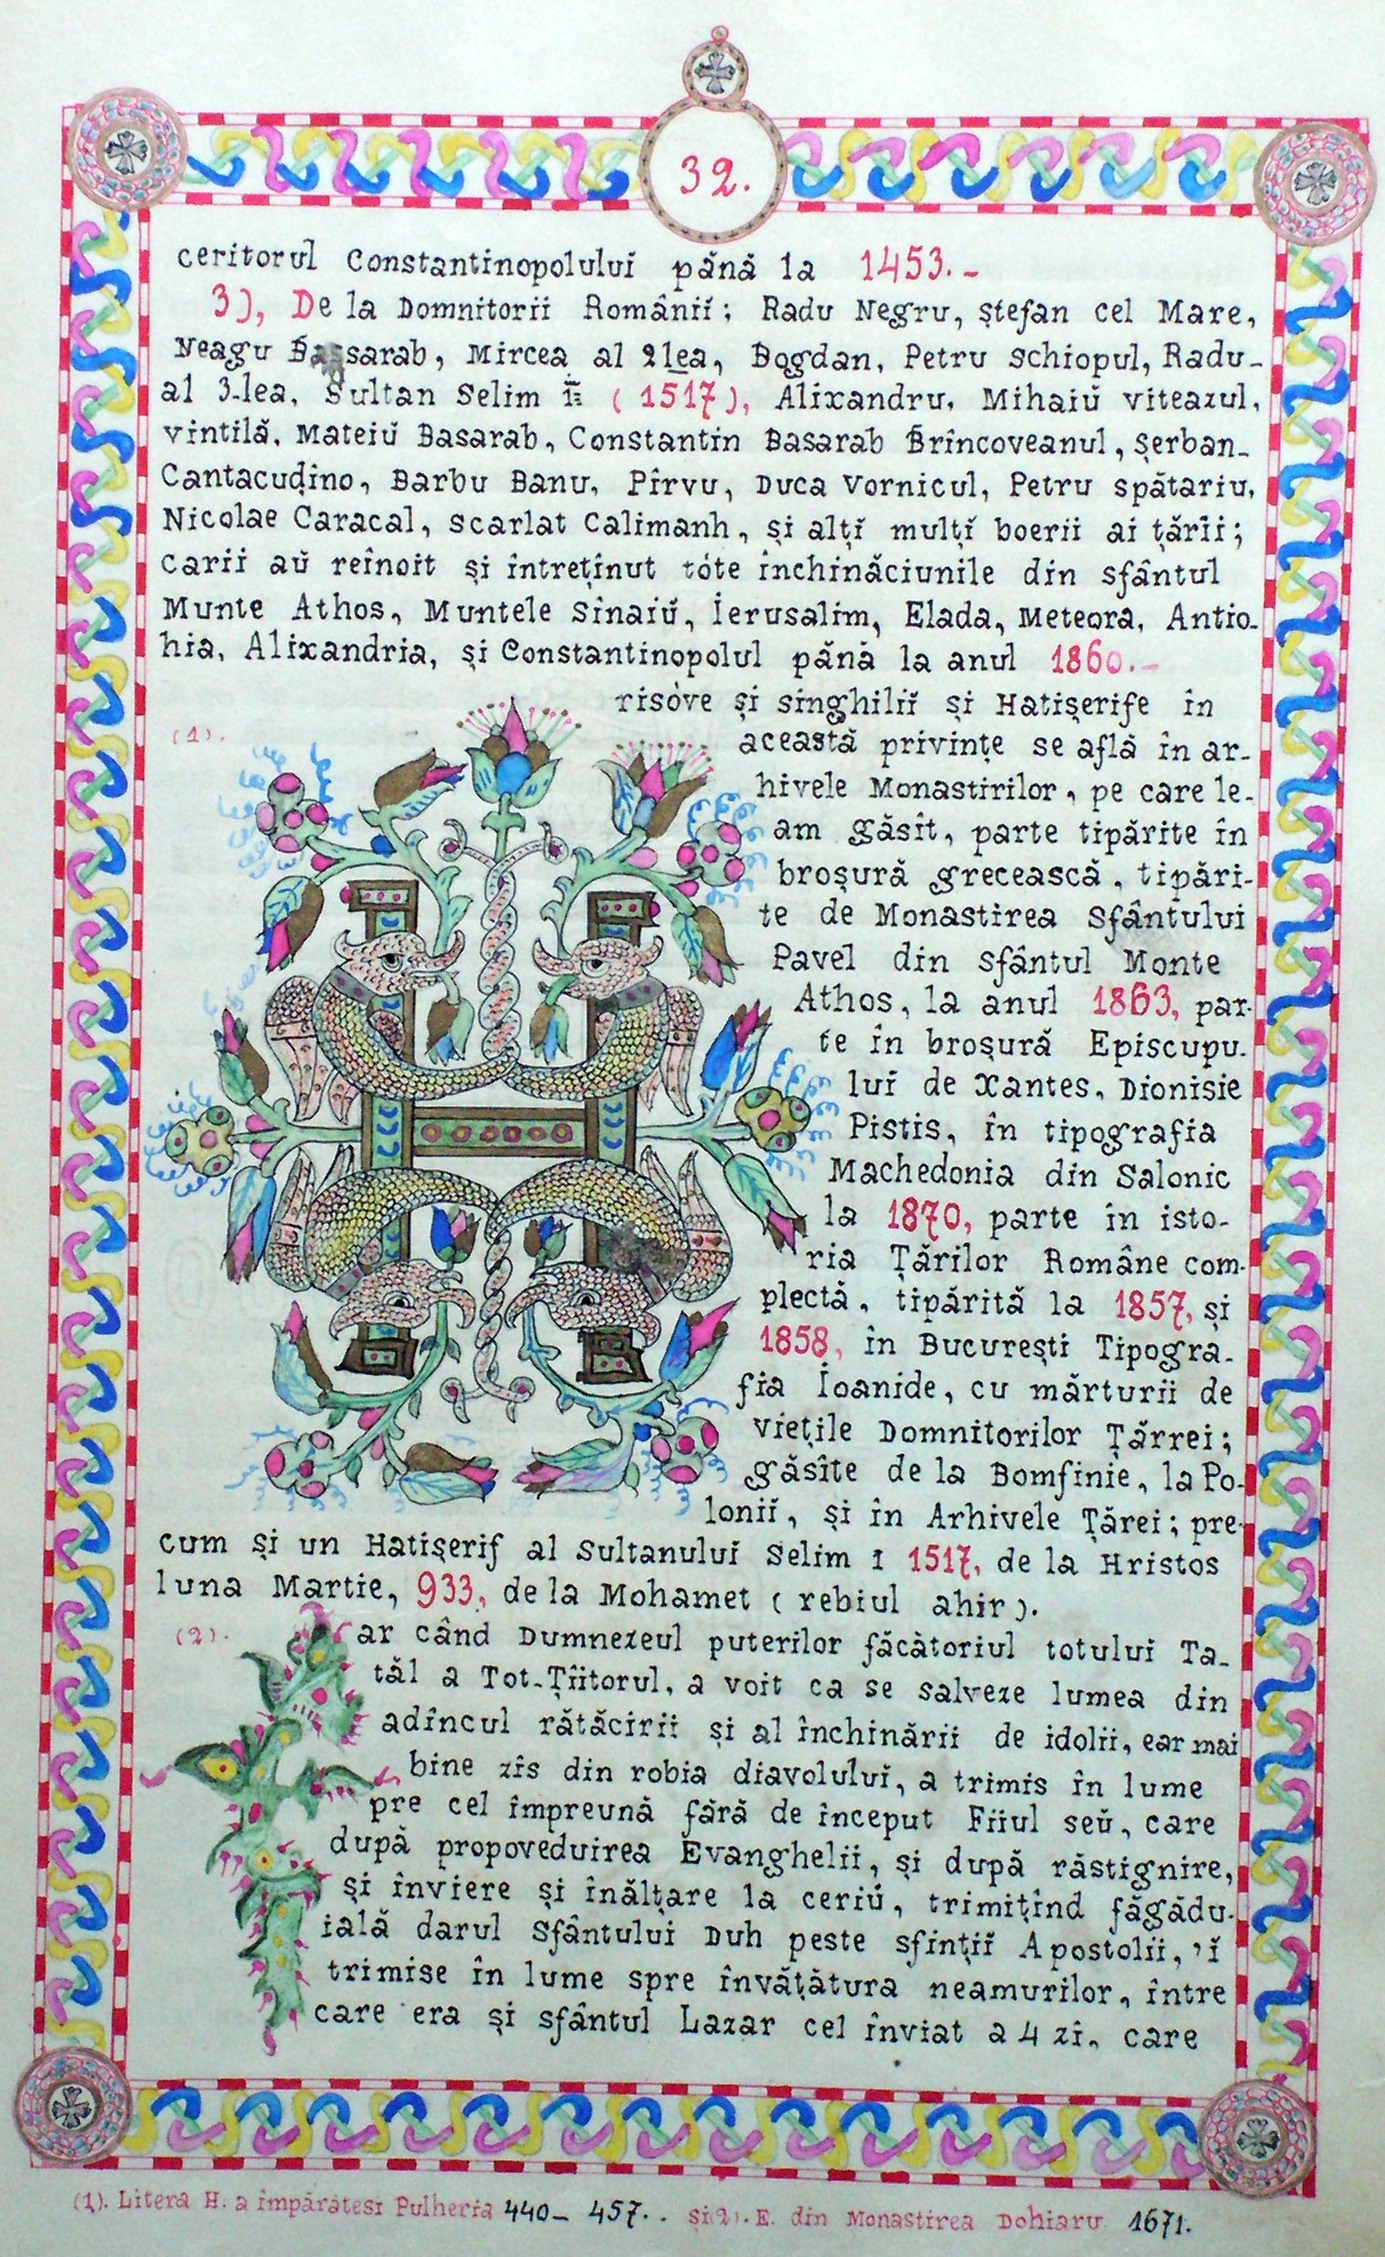 32.
ceritorul Constantinopoluluĭ pănă la 1453.-
3), De la Domnitorii Românĭĭ; Radu Negru, Ștefan cel Mare,
Neagu Bassarab, Mircea al 2lea, Bogdan, Petru Schiopul, Radu-
al 3-lea, Sultan Selim (1517), Alixandru, Mihaiŭ viteazul,
vintilă, Mateiŭ Basarab, Constantin Basarab Brîncoveanul, Șerban-
Cantacuḑino, Barbu Banu, Pîrvu, Duca Vornicul, Petru spătariu,
Nicolae Caracal, Scarlat Calimanh, și alțĭ mulțĭ boerii ai țării;
carii aŭ reînoit și întreținut tóte închinăciunile din sfântul
Munte Athos, Muntele Sînaiŭ, Ierusalim, Elada, Meteora, Antio-
hia, Alixandria, și Constantinopolul pănă la anul 1860.-
(1).
H
risòve și singhiliĭ și Hatișerife în
această privințe se află în ar-
hivele Monastirilor, pe care le-
am găsît, parte tipărite în
broșură grecească, tipări-
te de Monastirea Sfântului
Pavel din sfântul Monte
Athos, la anul 1863, par-
te în broșură Episcupu-
lui de Xantes, Dionisie
Pistis, în tipografia
Machedonia din Salonic
la 1870, parte în isto-
ria Țărilor Române com-
plectă, tipărită la 1857, și
1858, în București Tipogra-
fia Ioanide, cu mărturii de
viețile Domnitorilor Țărrei;
găsîte de la Bomfinie, la Po-
loniĭ, și în Arhivele Țărei; pre-
cum și un Hatișerif al Sultanuluĭ Selim I 1517, de la Hristos
luna Martie, 933, de la Mohamet (rebiul ahir).
(2).
E
ar când Dumnezeul puterilor făcătoriul totuluĭ Ta-
tăl a Tot-Țîitorul, a voit ca se salveze lumea din
adîncul rătăcirii și al închinării de idolii, ear mai
bine zîs din robia diavoluluĭ, a trimis în lume
pre cel împreună fără de început Fiiul seŭ, care
după propoveduirea Evanghelii, și după răstignire,
și înviere și înălțare la ceriŭ, trimițînd făgădu-
ială darul Sfântuluĭ Duh peste sfințiĭ Apostolii, 'ĭ
trimise în lume spre învățătura neamurilor, între
care era și sfântul Lazar cel înviat a 4 zi, care
(1). Litera H. a împărătesi Pulheria 440- 457.. și(2). E. din Monastirea Dohiaru 1671.